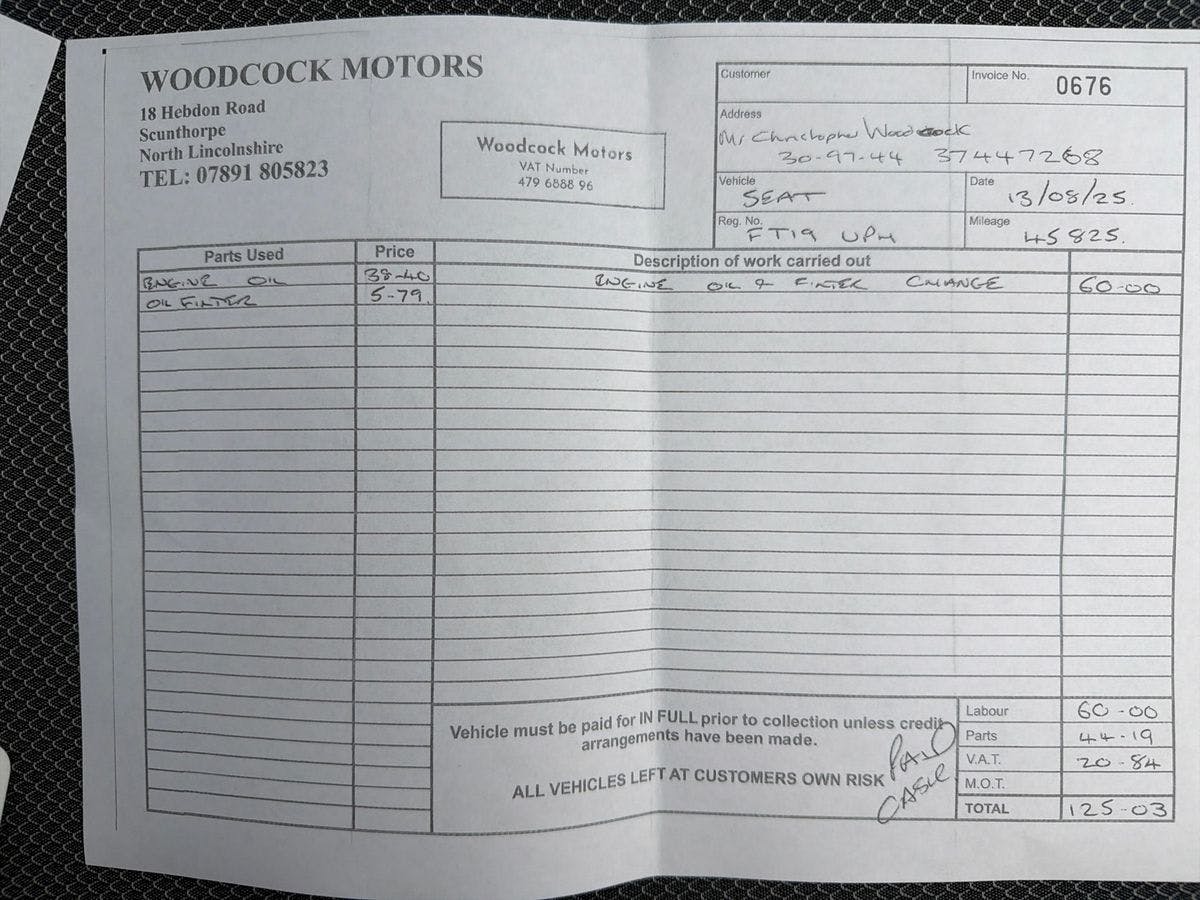 WOODCOCK MOTORS
18 Hebdon Road
Scunthorpe
North Lincolnshire
TEL: 07891 805823
Woodcock Motors
VAT Number
479 6888 96
Customer
Invoice No. 0676
Address
Mr Christopher Woodcock
30-97-44 37447268
Vehicle
SEAT
Date
13/08/25.
Reg. No.
FT19 UPH
Mileage
45825.
Parts Used Price Description of work carried out
ENGINE OIL 38-40 ENGINE OIL & FILTER CHANGE 60-00
OIL FILTER 5-79.
Vehicle must be paid for IN FULL prior to collection unless credit
arrangements have been made.
ALL VEHICLES LEFT AT CUSTOMERS OWN RISK
PAID
CASH
Labour 60-00
Parts 44-19
V.A.T. 20-84
M.O.T.
TOTAL 125-03